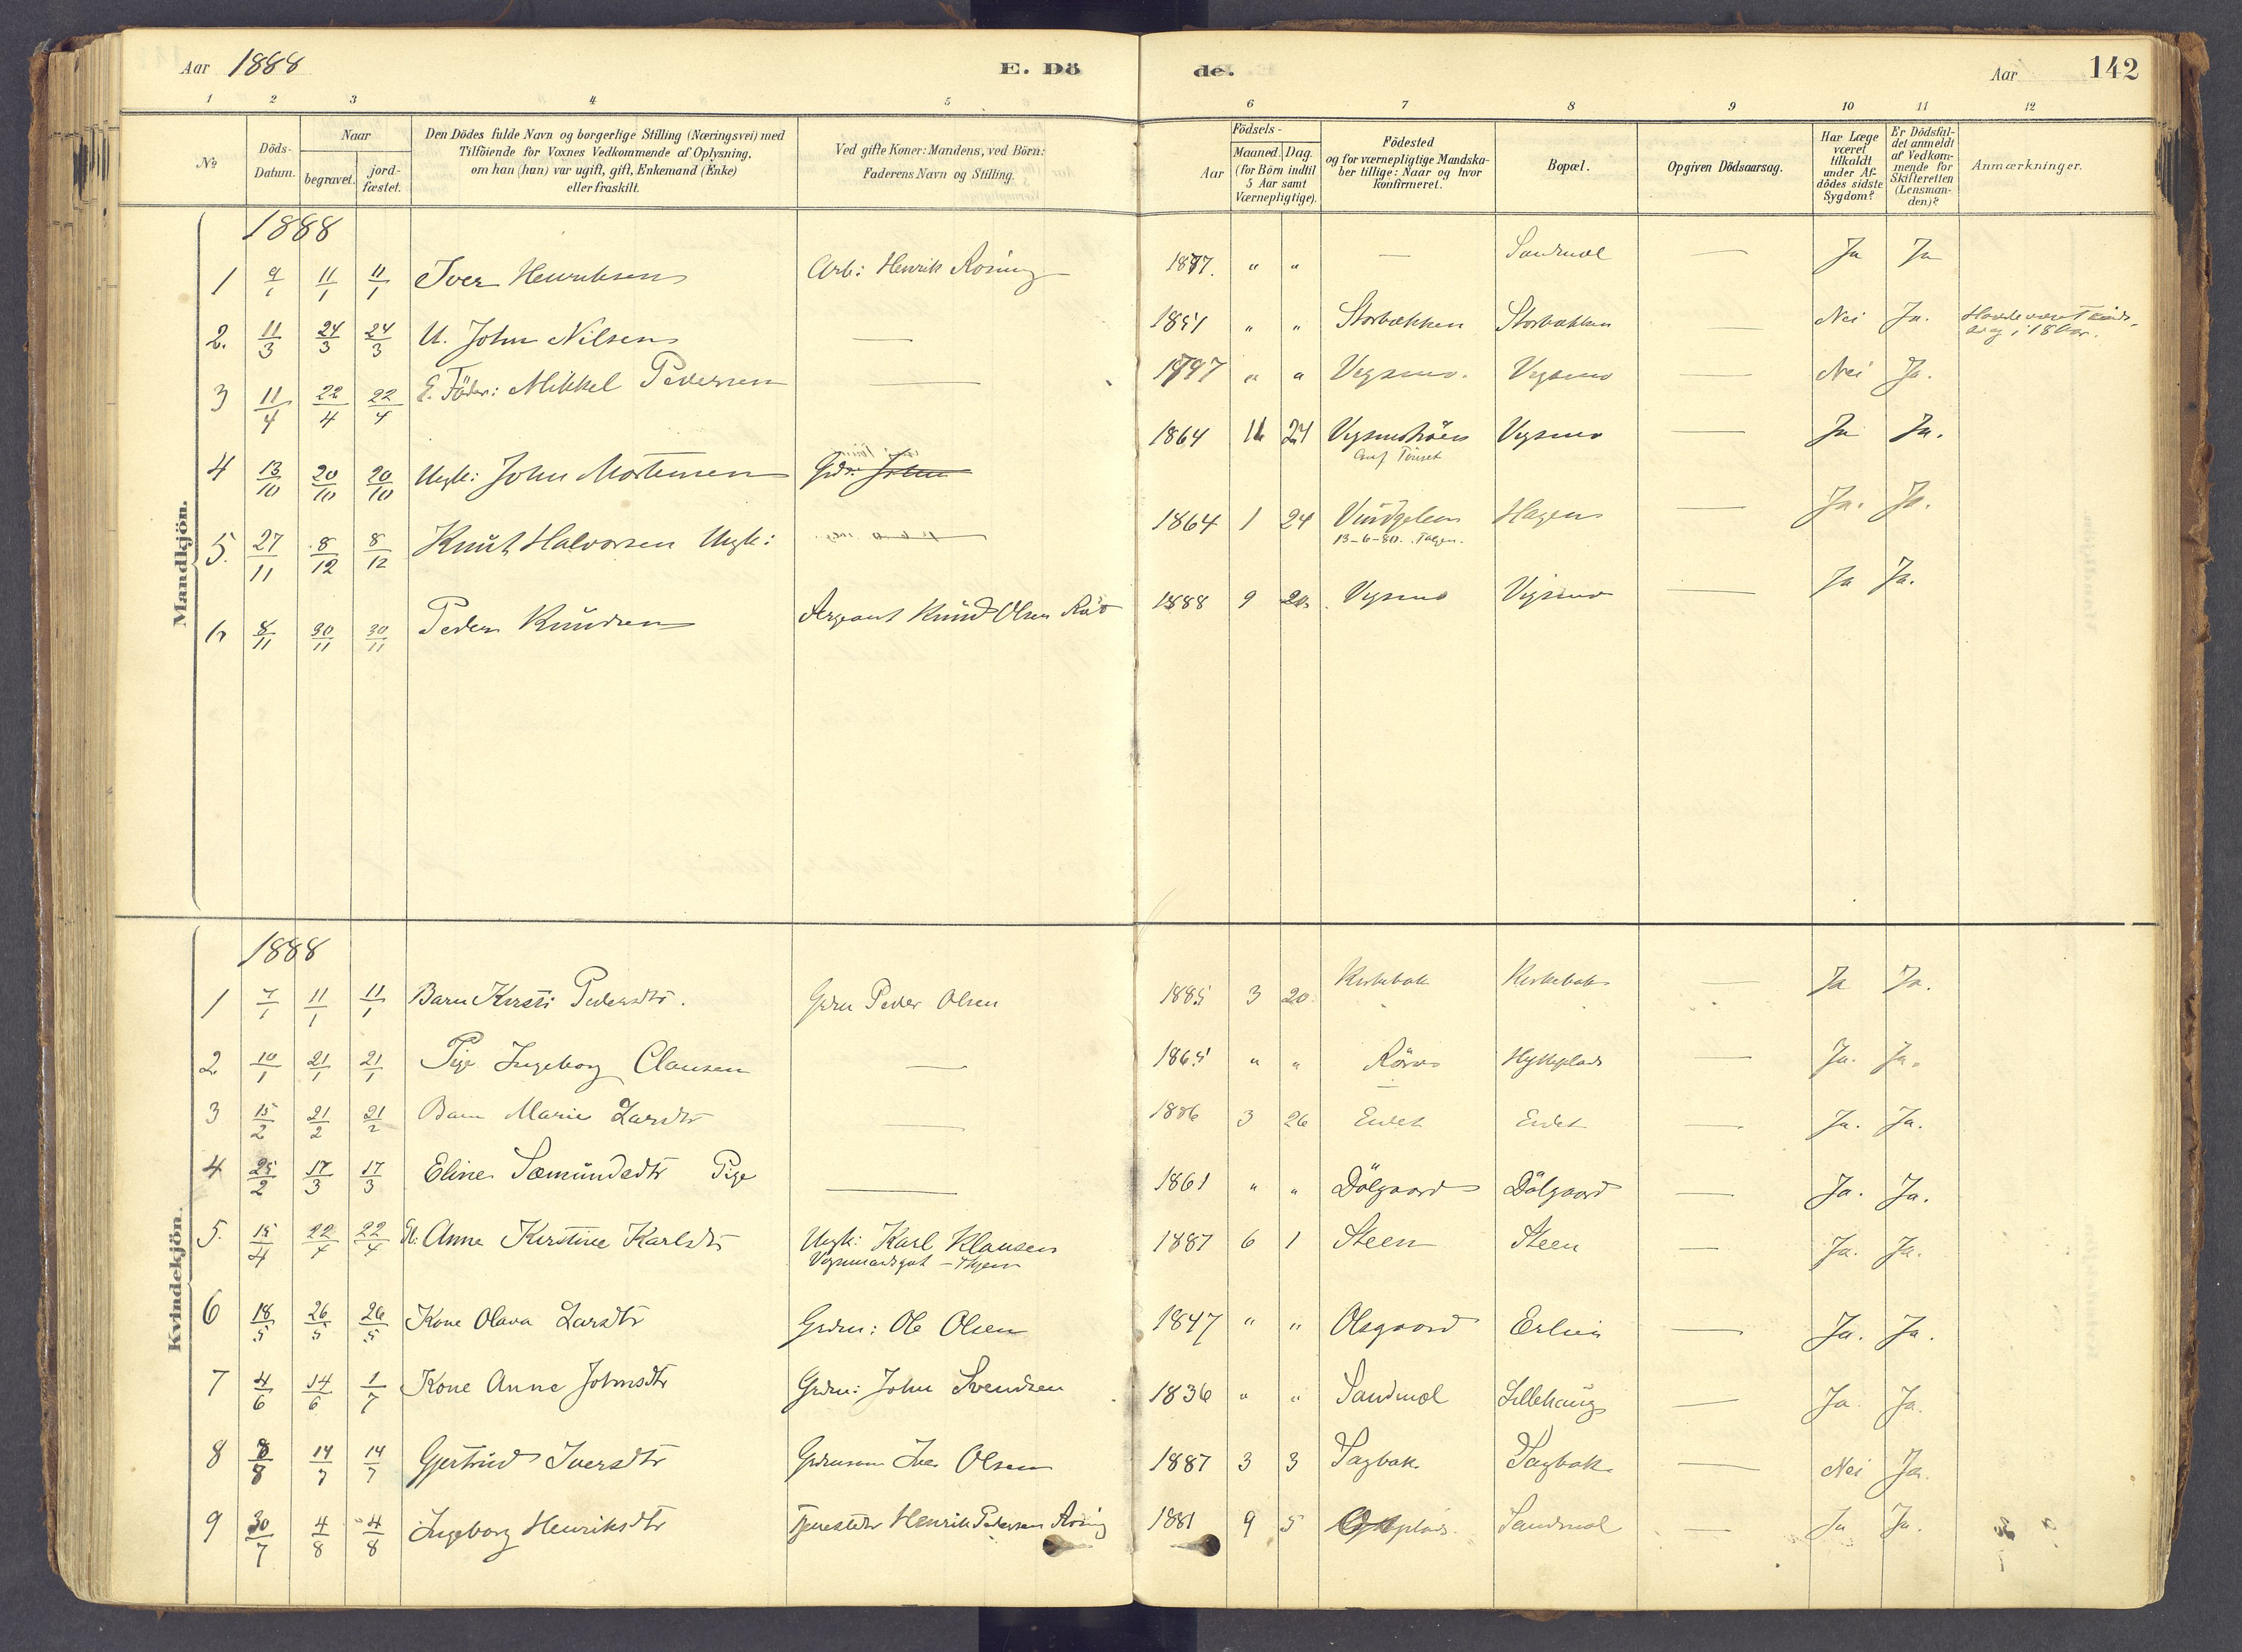 Aar 1888
E. Dö
de.
Aar
142
1 2 3 4 5 6 7 8 9 10 11 12
No
Döds-
Datum.
Naar
begravet.
jord-
fæstet.
Den Dödes fulde Navn og borgerlige Stilling (Næringsvei) med
Tilföiende for Voxnes Vedkommende af Oplysning,
om han (hun) var ugift, gift, Enkemand (Enke)
eller fraskilt.
Ved gifte Koner: Mandens, ved Börn:
Faderens Navn og Stilling.
Födsels-
Aar
Maaned.
Dag.
(for Börn indtil
5 Aar samt
Værnepligtige).
Födested
og for værnepligtige Mandska-
ber tillige: Naar og hvor
konfirmeret.
Bopæl.
Opgiven Dödsaarsag.
Har Læge
været
tilkaldt
under Af-
dödes sidste
Sygdom?
Er Dödsfal-
det anmeldt
af Vedkom-
mende for
Skifteretten
(Lensman-
den)?
Anmærkninger.
Mandkjön.
1888
1 9/1 11/1 11/1 Iver Henriksen Arb: Henrik Rosing 1887. " " — Sandmæl — Ja Ja
2. 11/3 24/3 24/3 U. John Nilsen — 1851 " " Storbækken Storbækken — Nei Ja.
3 11/4 22/4 22/4 E. Föder: Mikkel Pedersen — 1797 " " Vegsmo. Vegsmo — Nei Ja.
4 13/10 20/10 20/10 Ungk: John Mortensen Grdr: John 1864 24 Vegsmo — Ja Ja.
5. 27/11 8/12 8/12 Knut Halvorsen Ungk: 1864 1 24 Vindgelen Hagen — Ja. Ja.
13-6-80.
6 8/11 30/11 30/11 Peder Knudsen Sergeant Knud Olsen 1888 9 20 Vegsmo Vegsmo — Ja Ja.
Kvindekjön.
1888
1 7/1 11/1 11/1 Barn Kirsti Pedersdtr. Grdm Peder Olsen 1885 3 20 Kirkebak Kirkebak — Ja Ja.
2 10/1 21/1 21/1 Pige Ingeborg Clausen — 1865 " " Röros Hytteplads — Ja. Ja.
3 15/2 21/2 21/2 Barn Marie Larsdtr — 1886 3 26 Eidet Eidet — Ja. Ja.
4 25/2 17/3 17/3 Eline Sæmundsdtr Pige — 1861 " " Dölgaard Dölgaard — Ja. Ja.
5. 15/4 22/4 22/4 Anne Kirstine Karlsdtr Ungk: Karl Klausen 1887 6 1 Steen Steen — Ja. Ja.
6 18/5 26/5 26/5 Kone Olava Larsdtr Grdm: Ole Olsen 1847 " " Olsgaard Erlien — Ja. Ja.
7 4/6 14/6 1/7 Kone Anne Johnsdtr Grdm: John Svendsen 1836 " " Sandmæl Lillehaug — Ja Ja.
8 8/8 14/7 14/7 Gjertrud Iversdtr Grdmann Iver Olsen 1887 3 3 Sagbak Sagbak — Nei Ja.
9 30/7 4/8 4/8 Ingeborg Henriksdtr Henrik Pedersen Rosing 1881 9 5 Sandmæl — Ja Ja.